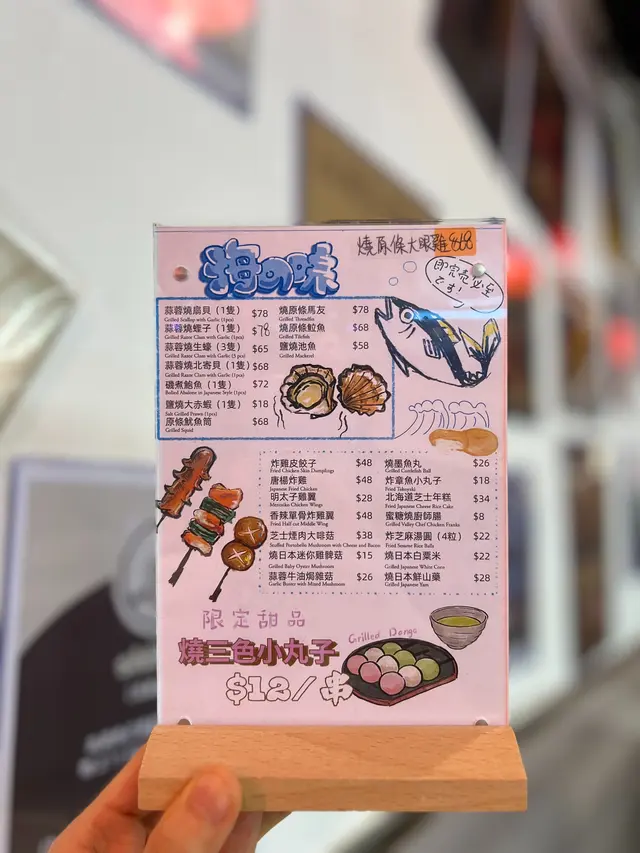 燒原條大眼雞
海の味
即完売必至
です!
蒜蓉燒扇貝（1隻） $78
Grilled Scallop with Garlic (1pcs)
蒜蓉燒蟶子（1隻） $78
Grilled Razor Clam with Garlic (1pcs)
蒜蓉燒生蠔（3隻） $65
Grilled Razor Clam with Garlic (3 pcs)
蒜蓉燒北寄貝（1隻） $68
Grilled Razor Clam with Garlic (1pcs)
磯煮鮑魚（1隻） $72
Boiled Abalone in Japanese Style (1pcs)
鹽燒大赤蝦（1隻） $18
Salt Grilled Prawn (1pcs)
原條魷魚筒 $68
Grilled Squid
燒原條馬友 $78
Grilled Threadfin
燒原條𩶘魚 $68
Grilled Tilefish
鹽燒池魚 $58
Grilled Mackerel
炸雞皮餃子 $48
Fried Chicken Skin Dumplings
唐楊炸雞 $48
Japanese Fried Chicken
明太子雞翼 $28
Mentaiko Chicken Wings
香辣單骨炸雞翼 $48
Fried Half cut Middle Wing
芝士煙肉大啡菇 $38
Stuffed Portobello Mushroom with Cheese and Bacon
燒日本迷你雞髀菇 $15
Grilled Baby Oyster Mushroom
蒜蓉牛油焗雜菇 $26
Garlic Butter with Mixed Mushroom
燒墨魚丸 $26
Grilled Cuttlefish Ball
炸章魚小丸子 $18
Fried Takoyaki
北海道芝士年糕 $34
Fried Japanese Cheese Rice Cake
蜜糖燒廚師腸 $8
Grilled Valley Chef Chicken Franks
炸芝麻湯圓（4粒） $22
Fried Sesame Rice Balls
燒日本白粟米 $22
Grilled Japanese White Corn
燒日本鮮山藥 $28
Grilled Japanese Yam
限定甜品
燒三色小丸子
Grilled Dango
$12/串